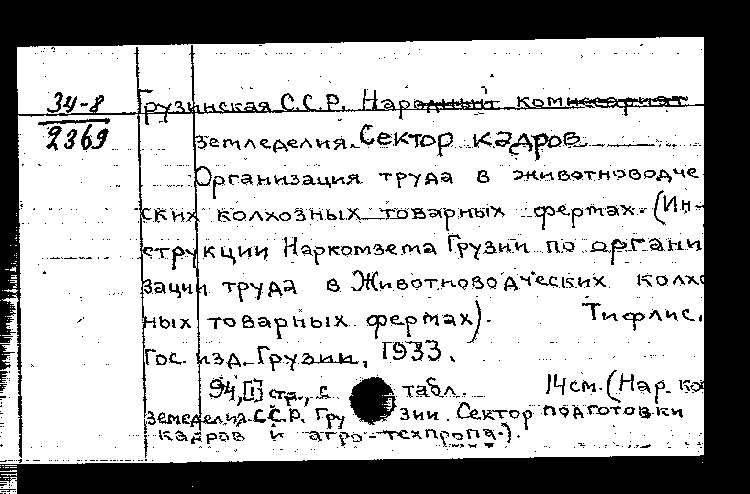 34-8
2369
Грузинская С.С.Р. Народный комиссариат
земледелия. Сектор кадров
Организация труда в животноводче
ских колхозных товарных фермах. (Ин-
струкции Наркомзема Грузии по органи
зации труда в Животноводческих колхо
ных товарных фермах). Тифлис,
Гос. изд. Грузии, 1933.
94,[1] стр., с табл. 14 см. (Нар. ко
земеделия С.С.Р. Гру зии. Сектор подготовки
кадров и агро-техпропа.).